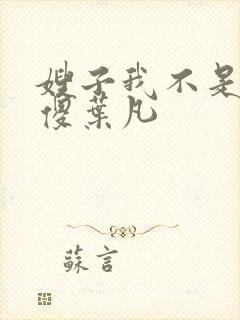 嫂子我不是
傻葉凡
蘇言